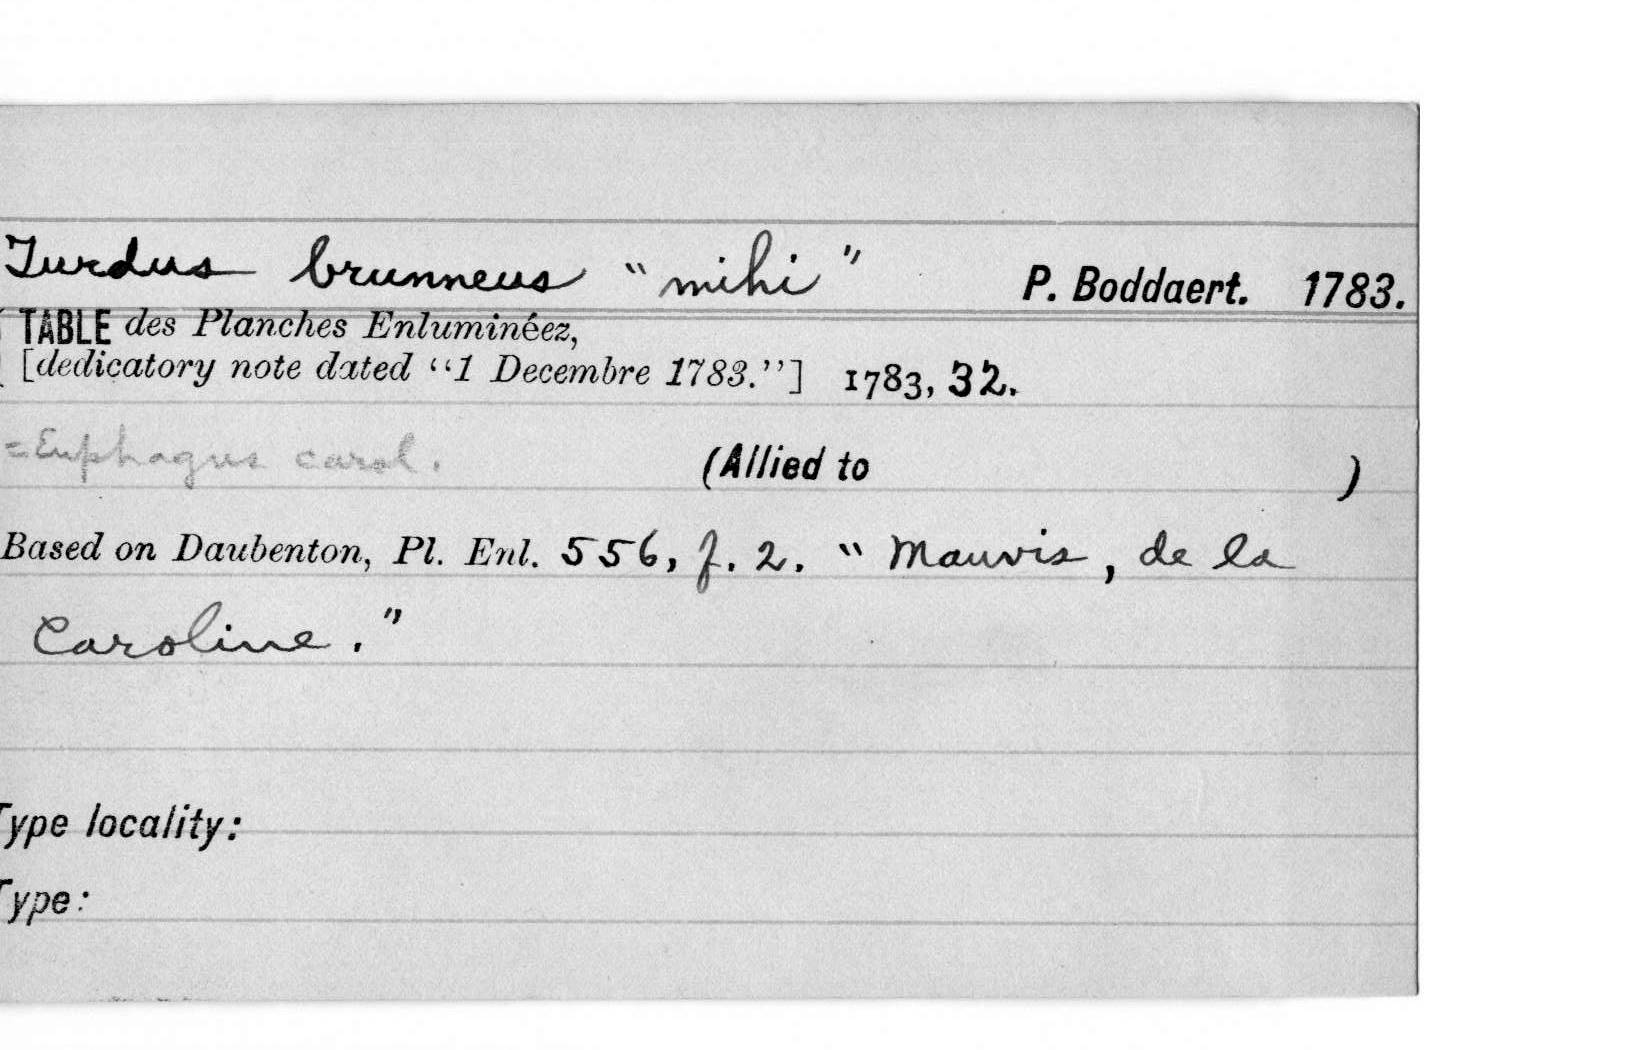 Turdus brunneus "mihi" P. Boddaert. 1783.
TABLE des Planches Enluminéez,
[dedicatory note dated "1 Decembre 1783."] 1783, 32.
=Euphagus carol. (Allied to )
Based on Daubenton, Pl. Enl. 556, f. 2. "Mauvis, de la
Caroline."
Type locality:
Type: